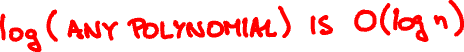 log(ANY POLYNOMIAL) IS O(log n)